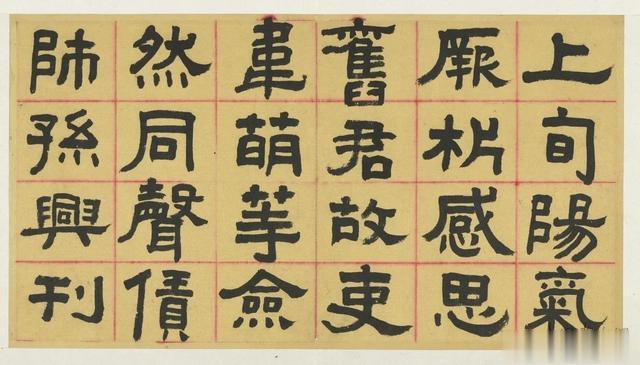 上旬陽氣
厥析感思
舊君故吏
韋萌等僉
然同聲債
師孫興刊